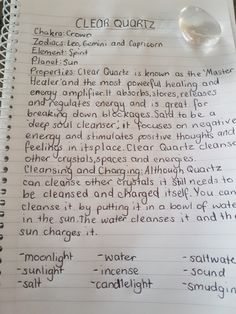 CLEAR QUARTZ
Chakra: Crown
Zodiacs: Leo, Gemini and Capricorn
Element: Spirit
Planet: Sun
Properties: Clear Quartz is known as the 'Master
Healer' and the most powerful healing and
energy amplifier. It absorbs, stores, releases
and regulates energy and is great for
breaking down blockages. Said to be a
'deep soul cleanser', it focuses on negative
energy and stimulates positive thoughts and
feelings in its place. Clear Quartz cleanse
other crystals, spaces and energies.
Cleansing and Charging: Although Quartz
can cleanse other crystals it still needs to
be cleansed and charged itself. You can
cleanse it by putting it in a bowl of water
in the sun. The water cleanses it and th
sun charges it.
-moonlight -water -saltwate
-sunlight -incense -sound
-salt -candlelight -smudgin